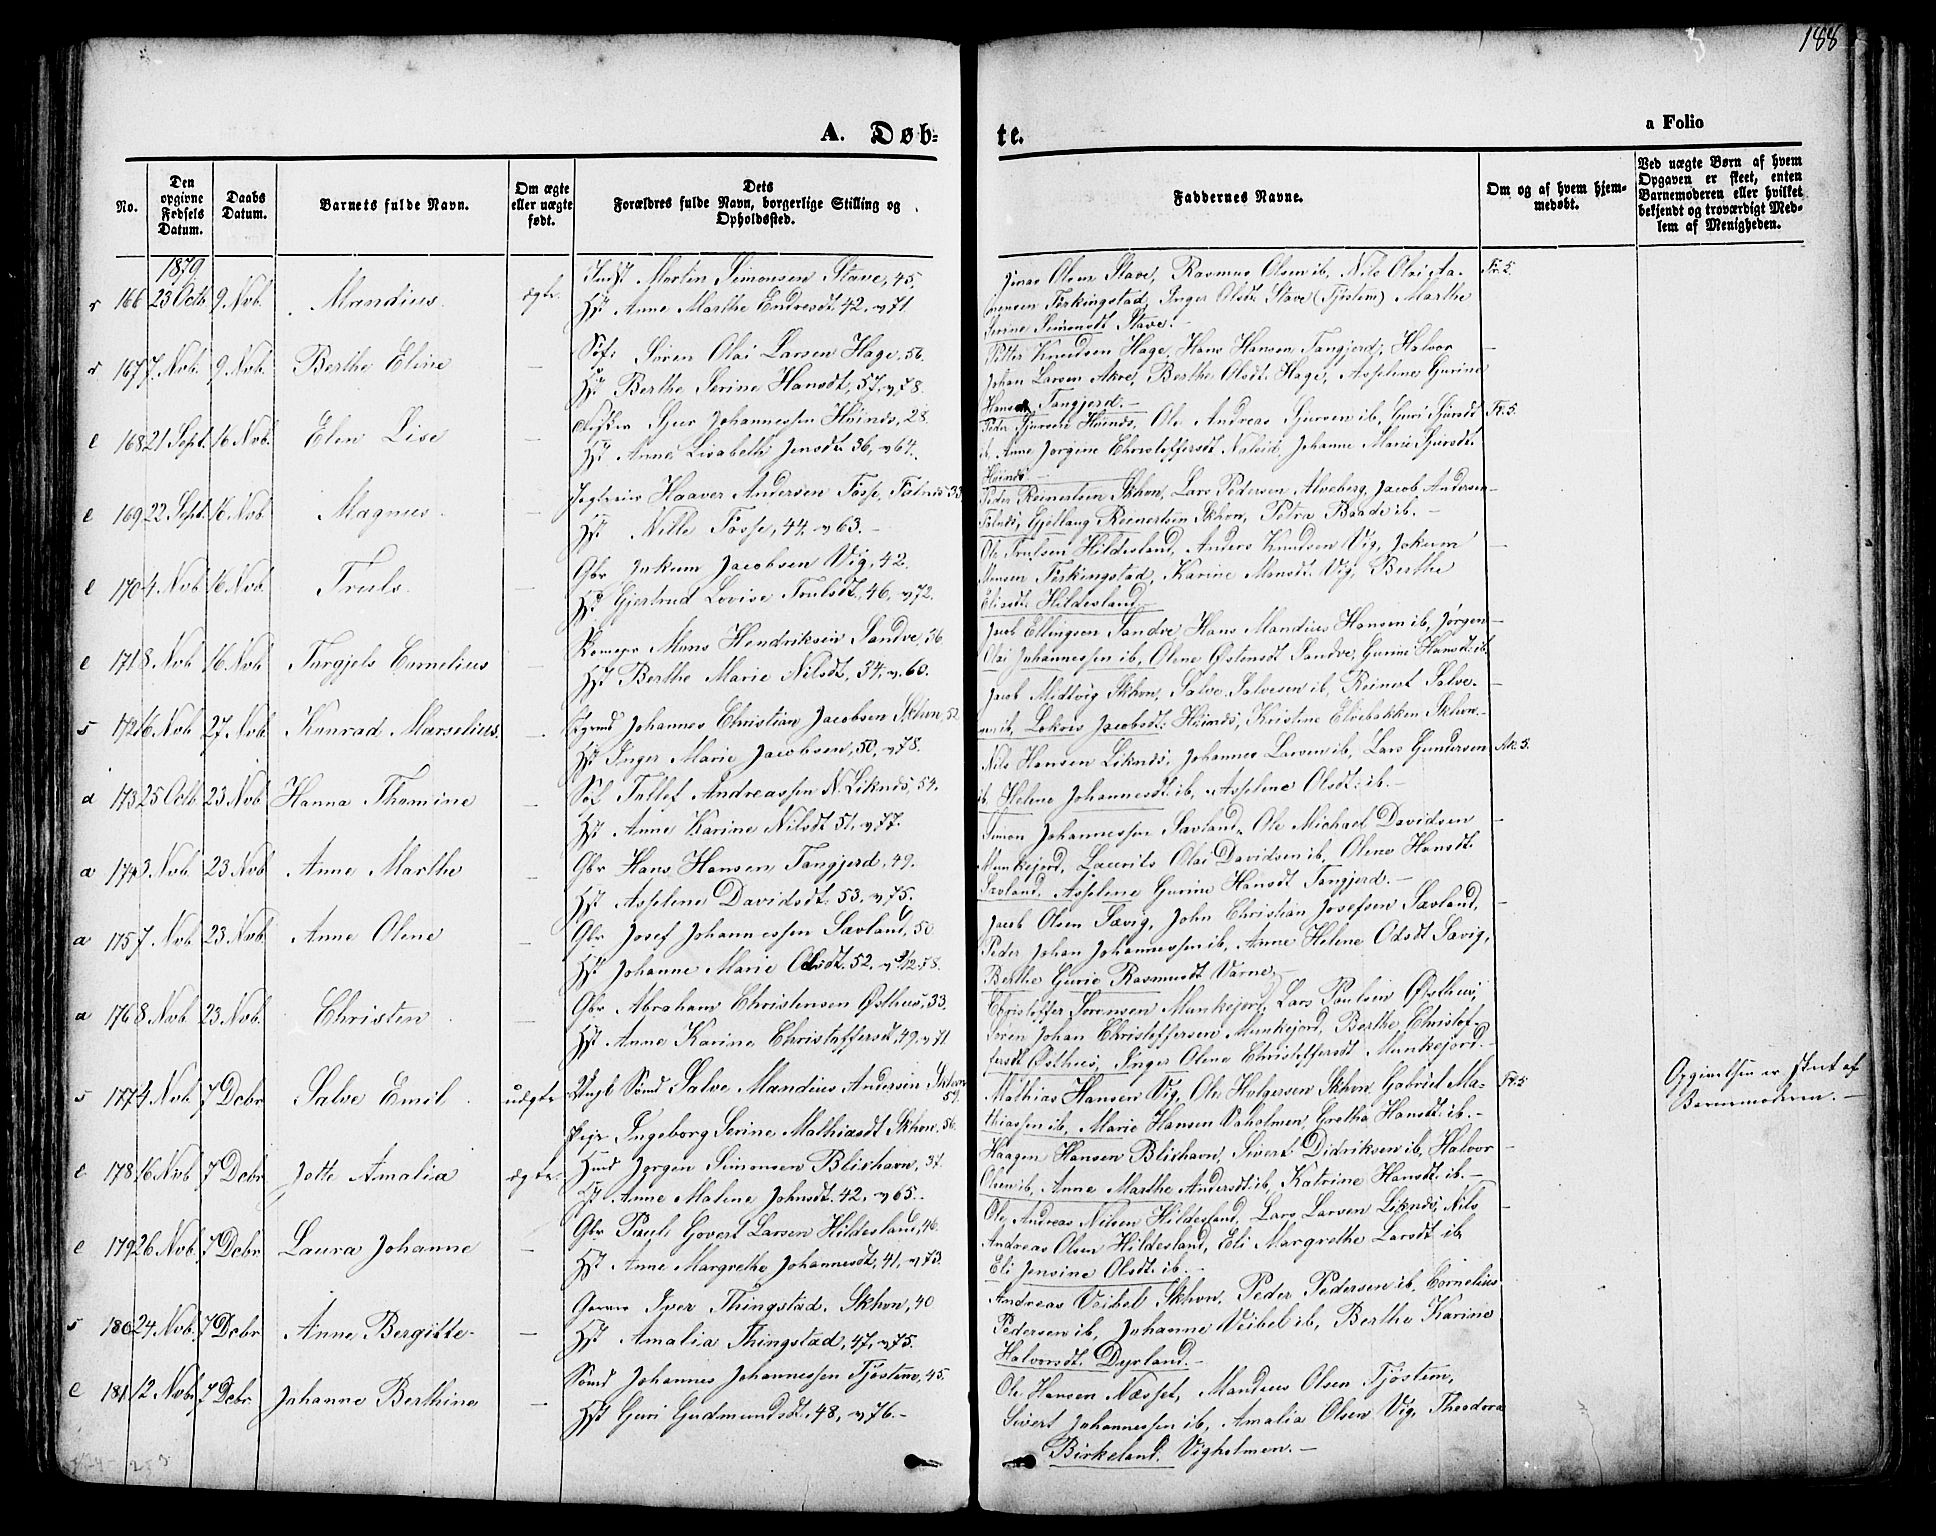 188
A. Døb-
te.
a Folio
No.
Den opgivne Fødsels Datum.
Daabs Datum.
Barnets fulde Navn.
Om ægte eller uægte født.
Dets Forældres fulde Navn, borgerlige Stilling og Opholdssted.
Faddernes Navne.
Om og af hvem hjemmedøbt.
Ved uægte Børn af hvem Opgaven er skeet, enten Barnemoderen eller hvilket bekjendt og troværdigt Medlem af Menigheden.
1879
r 166 23 Octb 9. Nvb. Mandius ægte Martin Simonsen Stave, 45.
Hst Anne Marthe Endresdt. 42. 71.
Jonas Olsen Stave, Rasmus Olsen ib, Nils Olai
Ferkingstad, Inger Olsdt. Stave (Tjøstem) Marthe
Serine Simonsdt Stave.-
r 167 7. Nvb. 9 Nvb. Berthe Eline — Søf: Søren Olai Larsen Hage, 56.
Hst Berthe Serine Hansdt, 57, 78.
Petter Knudsen Hage, Hans Hansen Tangjerd, Halvor
Johan Larsen Akre, Berthe Olsdt. Hage, Asseline Gurine
Tangjerd.-
e 168 21 Sept. 16 Nvb. Elen Lise — Sjur Johannessen Høinds, 28
Hst Anne Lisabeth Jensdt. 36, 64.
Peder Sjursen Høinds, Ole Andreas Sjursen ib, Guri Sjursdt
ib Anne Jorgine Christoffersdt Johanne Marie Sjursdt.
Høinds
e 169 22 Sept. 16 Nvb Magnus — Haaver Andersen Fosse, 33
Hst Nille Fosse, 44, 63.-
Peder Reinertsen Skhvn, Lars Pedersen Alveberg, Jacob Andersen
Reinertsen Skhvn, Petra Baade ib.-
e 170 4 Nvb 16 Nvb. Truls — Gbr Jokum Jacobsen Vig, 42.
Hst Gjertrud Lovise Trulsdt. 46, 72.
Ole Trulsen Hildesland, Anders Knudsen Vig, Jokum
Monsen Ferkingstad, Karine Monsdt. Vig, Berthe
Elisdt. Hildesland.
e 171 8. Nvb 16 Nvb Torgjels Cornelius — Mons Hendriksen Sandve, 36
Hst Berthe Marie Nilsdt, 34, 60.
Jacob Ellingsen Sandve, Hans Mandius Hansen ib, Jørgen
Olai Johannessen ib, Olene Østensdt Sandve, Gurine Hansdt. ib.
s 172 16 Nvb 27 Nvb. Konrad Marselius. — Johannes Christian Jacobsen Skhvn, 52
Hst Inger Marie Jacobsen, 50, 78.
Jacob Medtvig Skhvn, Salve Salvesen ib, Reinert Salve-
sen ib, Jacobsdt. Høinds, Kristine Elvebakken Skhvn.-
a 173 25 Octb 23 Nvb Hanna Thomine — Søf Tallef Andreassen N. Liknds, 54.
Hst Anne Karine Nilsdt 51. 77.
Nils Hansen Liknds, Johannes Larsen ib, Lars Gundersen
ib. Helene Johannesdt. ib, Asseline Olsdt. ib.-
a 174 3 Nvb. 23 Nvb Anne Marthe — Gbr Hans Hansen Tangjerd, 49.
Hst Asseline Davidsdt. 53. 75.
Simon Johannessen Sævland, Ole Michael Davidsen
Munkejord, Laurits Olai Davidsen ib, Olene Hansdt.
Sævland, Asseline Gurine Hansdt Tangjerd.-
a 175 7 Nvb 23 Nvb. Anne Olene — Gbr Josef Johannessen Sævland, 50
Hst Johanne Marie Olsdt. 52, 78.
Jacob Olsen Sævig, John Christian Josefsen Sævland,
Peder Johan Johannessen ib, Anne Helene Odsdt Sævig,
Berthe Gurie Rasmusdt Varne.-
a 176 8 Nvb 23 Nvb. Christen — Gbr Abraham Christensen Østhus, 33.
Hst Anne Karine Christoffersdt, 49, 71
Christoffer Sørensen Munkejord, Lars Paulsen Østhus,
Søren Johan Christoffersen Munkejord, Berthe Christof-
fersdt Østhus, Inger Olene Christoffersdt Munkejord.-
s 177 4 Nvb 7 Dcbr Salve Emil uægte Ungk Sømd Salve Mandius Andersen Skhvn 59.
Pige Ingeborg Serine Mathiasdt Skhvn. 56.
Mathias Hansen Vig, Ole Holgersen Skhvn, Gabriel Ma-
thiassen ib, Marie Hansen Vaholmen, Grethe Hansdt. ib.-
Opgivelsen er skeet af
Barnemoderen.-
e 178 16 Nvb 7 Dcbr Jotte Amalia ægte Jørgen Simonsen Blixhavn, 37.
Hst Anne Malene Johnsdt. 42, 65.
Haagen Hansen Blixhavn, Sivert Didriksen ib, Halvor
Olsen ib, Anne Marthe Andersdt. ib, Katrine Hansdt. ib.-
e 179 26 Nvb. 7 Dcbr Laura Johanne — Gbr Paul Govert Larsen Hildesland, 46.
Hst Anne Margrethe Johannesdt, 41, 73.
Ole Andreas Nilsen Hildesland, Lars Larsen Liknds, Nils
Andreas Olsen Hildesland, Eli Margrethe Larsdt ib.
Eli Jensine Olsdt. ib.-
s 180 24 Nvb. 7 Dcbr Anne Bergitte — Iver Thingstad. Skhvn, 40
Hst Amalia Thingstad, 47, 75.
Andreas Veibel Skhvn, Peder Pedersen ib, Cornelius
Pedersen ib, Johanne Veibel ib, Berthe Karine
Halvorsdt. Dyrland.-
e 181 12 Nvbr 7 Dcbr. Johanne Berthine — Sømd Johannes Johannessen Tjøstem, 45.
Hst Guri Gudmundsdt. 48, 76.-
Ole Hansen Næsset, Mandius Olsen Tjøstem,
Sivert Johannessen ib, Amalia Olsen Vig, Theodora
Birkeland. Vigholmen.-